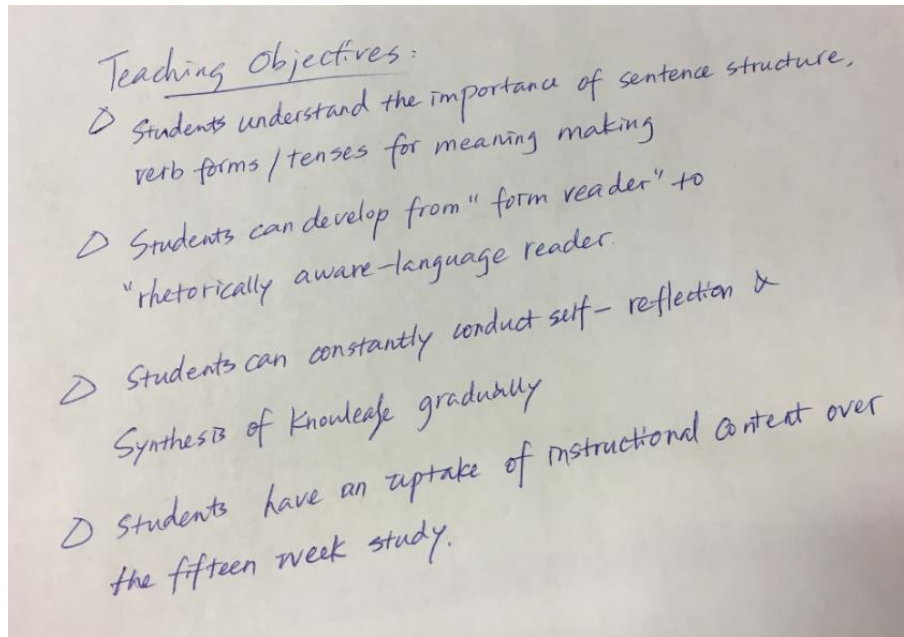 Teaching Objectives:
Students understand the importance of sentence structure,
verb forms / tenses for meaning making
Students can develop from "form reader" to
"rhetorically aware-language reader.
Students can constantly conduct self-reflection &
Synthesis of knowledge gradually
Students have an uptake of instructional content over
the fifteen week study.